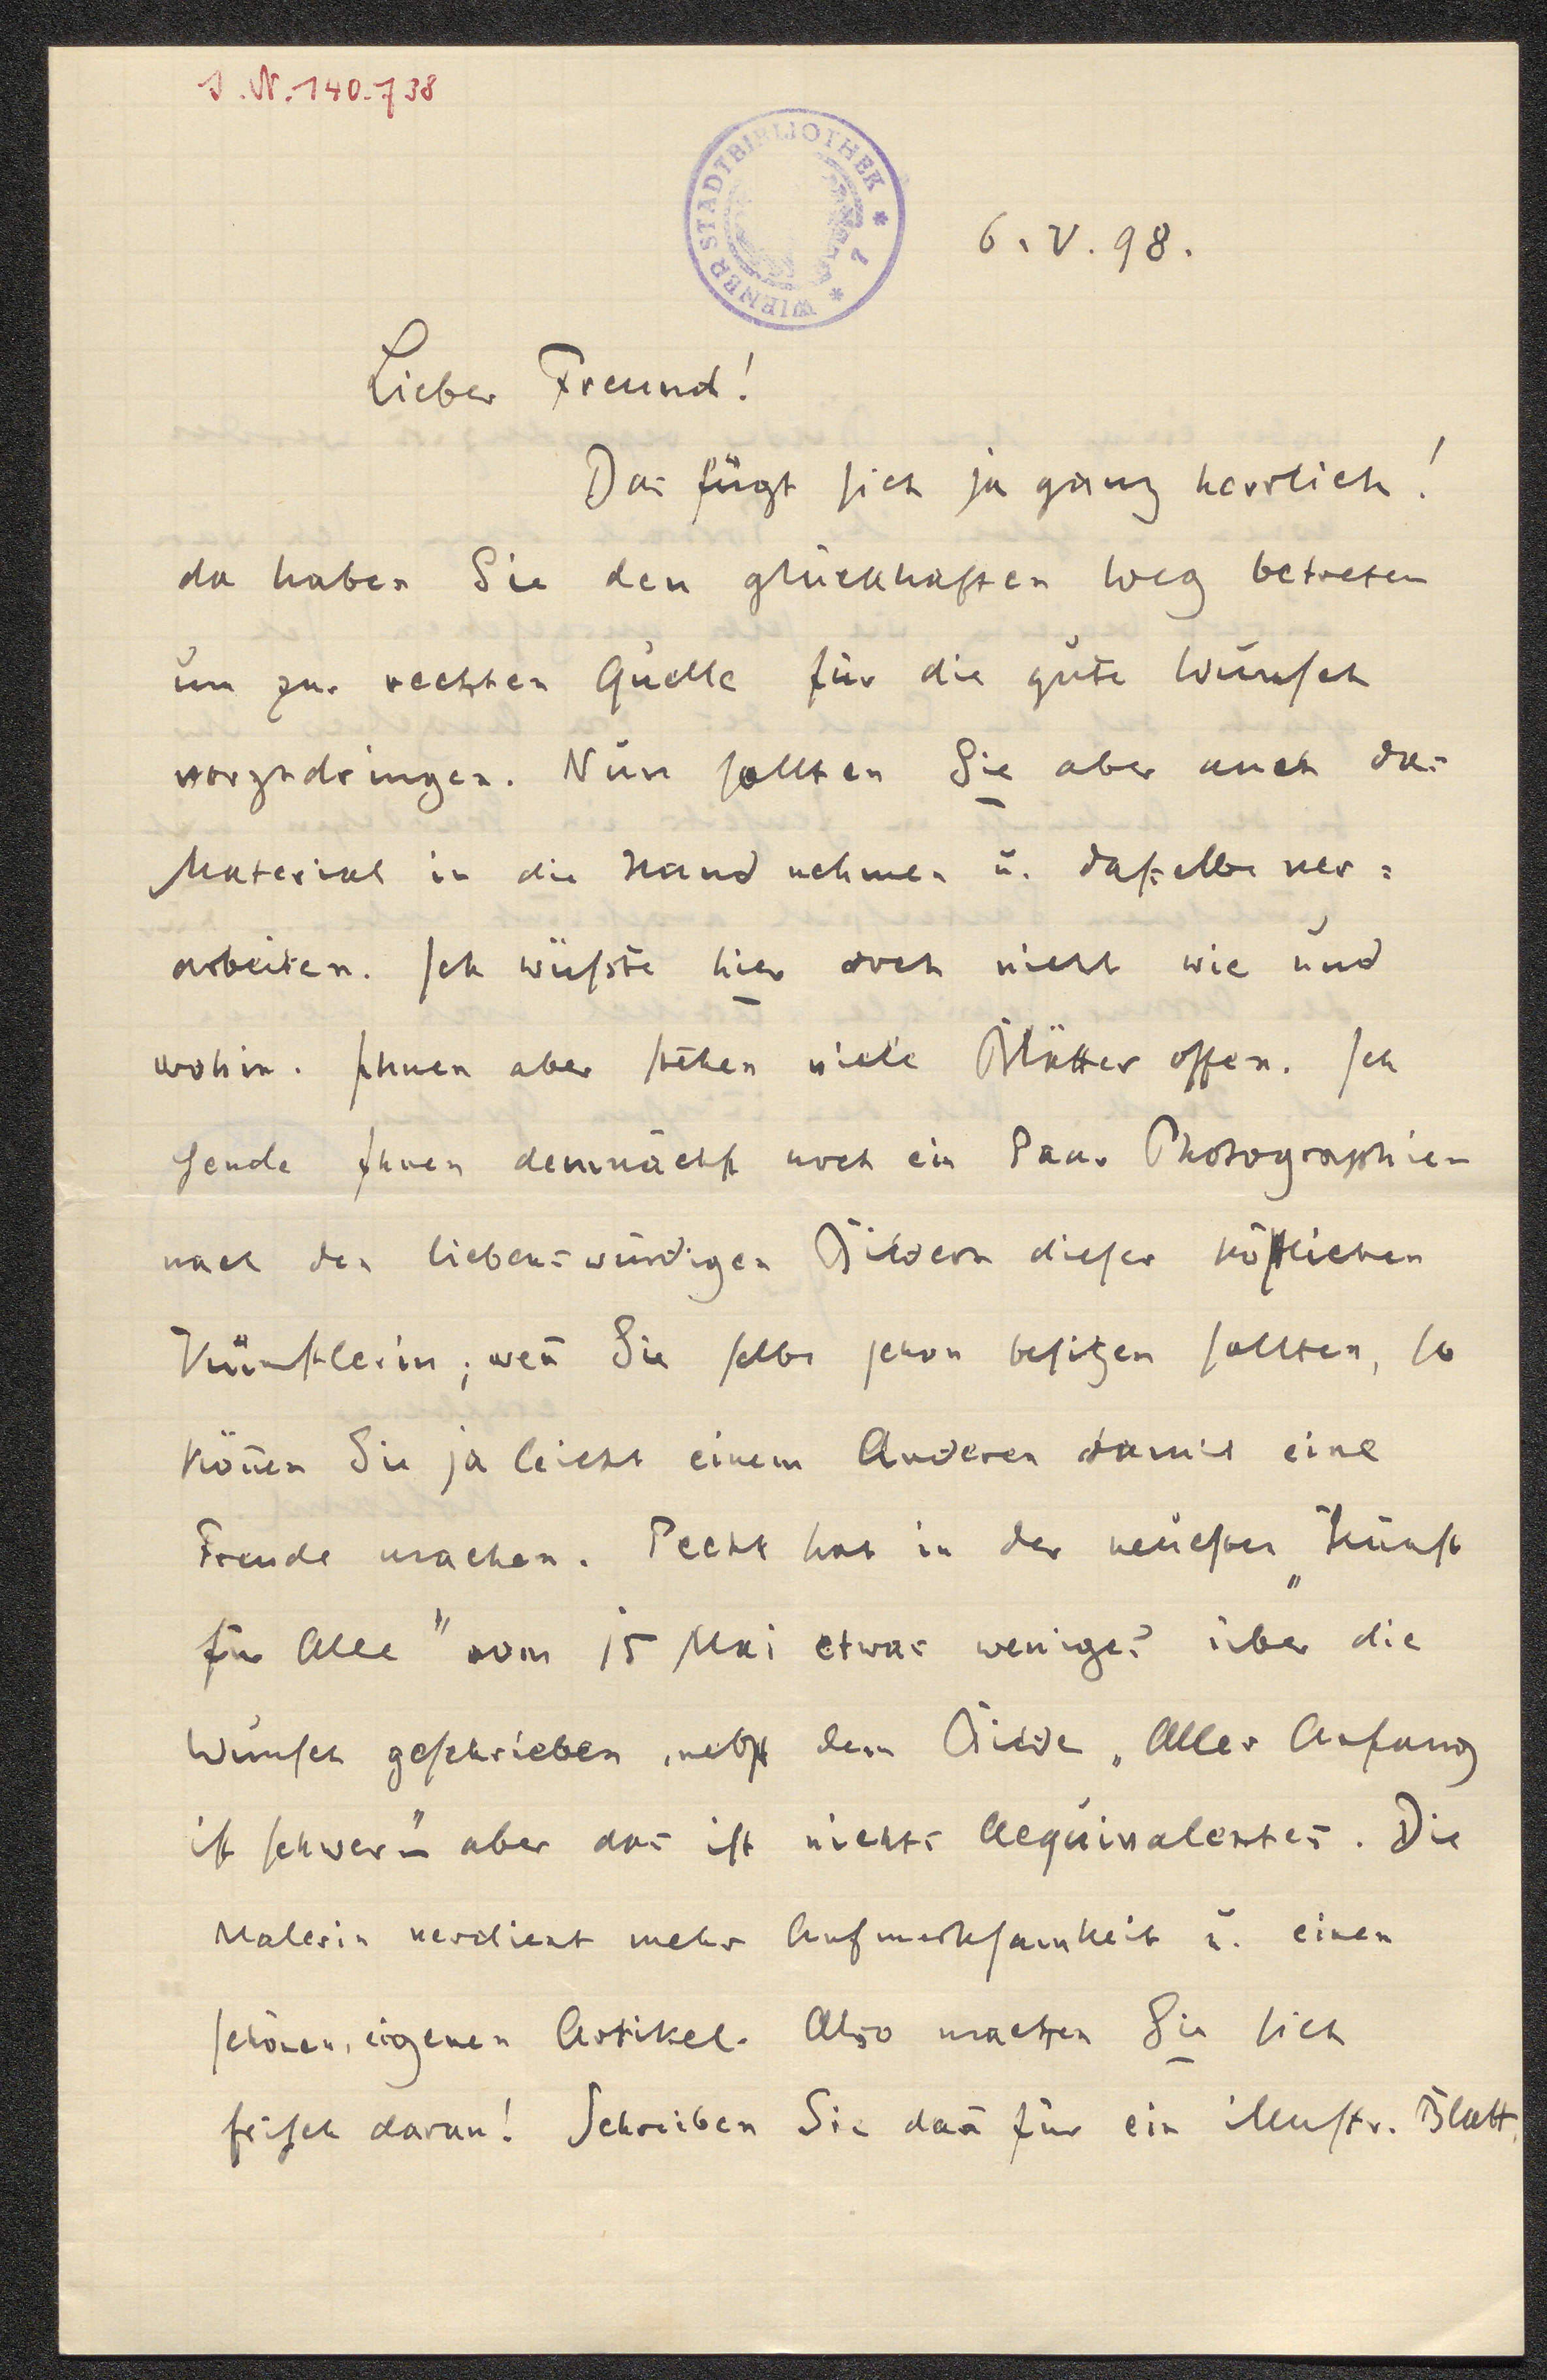 J.N. 140.738
WIENER STADTBIBLIOTHEK * 7 *
6. V. 98.
Lieber Freund!
Das fügt sich ja ganz herrlich!
da haben Sie den glückhaften Weg betreten
um zur rechten Quelle für die gute Wunsch
vorzudringen. Nun sollten Sie aber auch das
Material in die Hand nehmen u. dasselbe ver=
arbeiten. Ich wüßte hier doch nicht wie und
wohin. Ihnen aber stehen viele Blätter offen. Ich
sende Ihnen demnächst noch ein Paar Photographien
nach den liebenswürdigen Bildern dieser köstlichen
Künstlerin; wen̅ Sie selbe schon besitzen sollten, so
kön̅en Sie ja leicht einem Anderen damit eine
Freude machen. Pecht hat in der neuesten „Kunst
für Alle" vom 15 Mai etwas weniges über die
Wunsch geschrieben, nebst dem Bilde „Aller Anfang
ist schwer" – aber das ist nichts Aequivalentes. Die
Malerin verdient mehr Aufmerksamkeit u. einen
schönen, eigenen Artikel. Also machen Sie sich
frisch daran! Schreiben Sie dan̅ für ein illustr. Blatt,